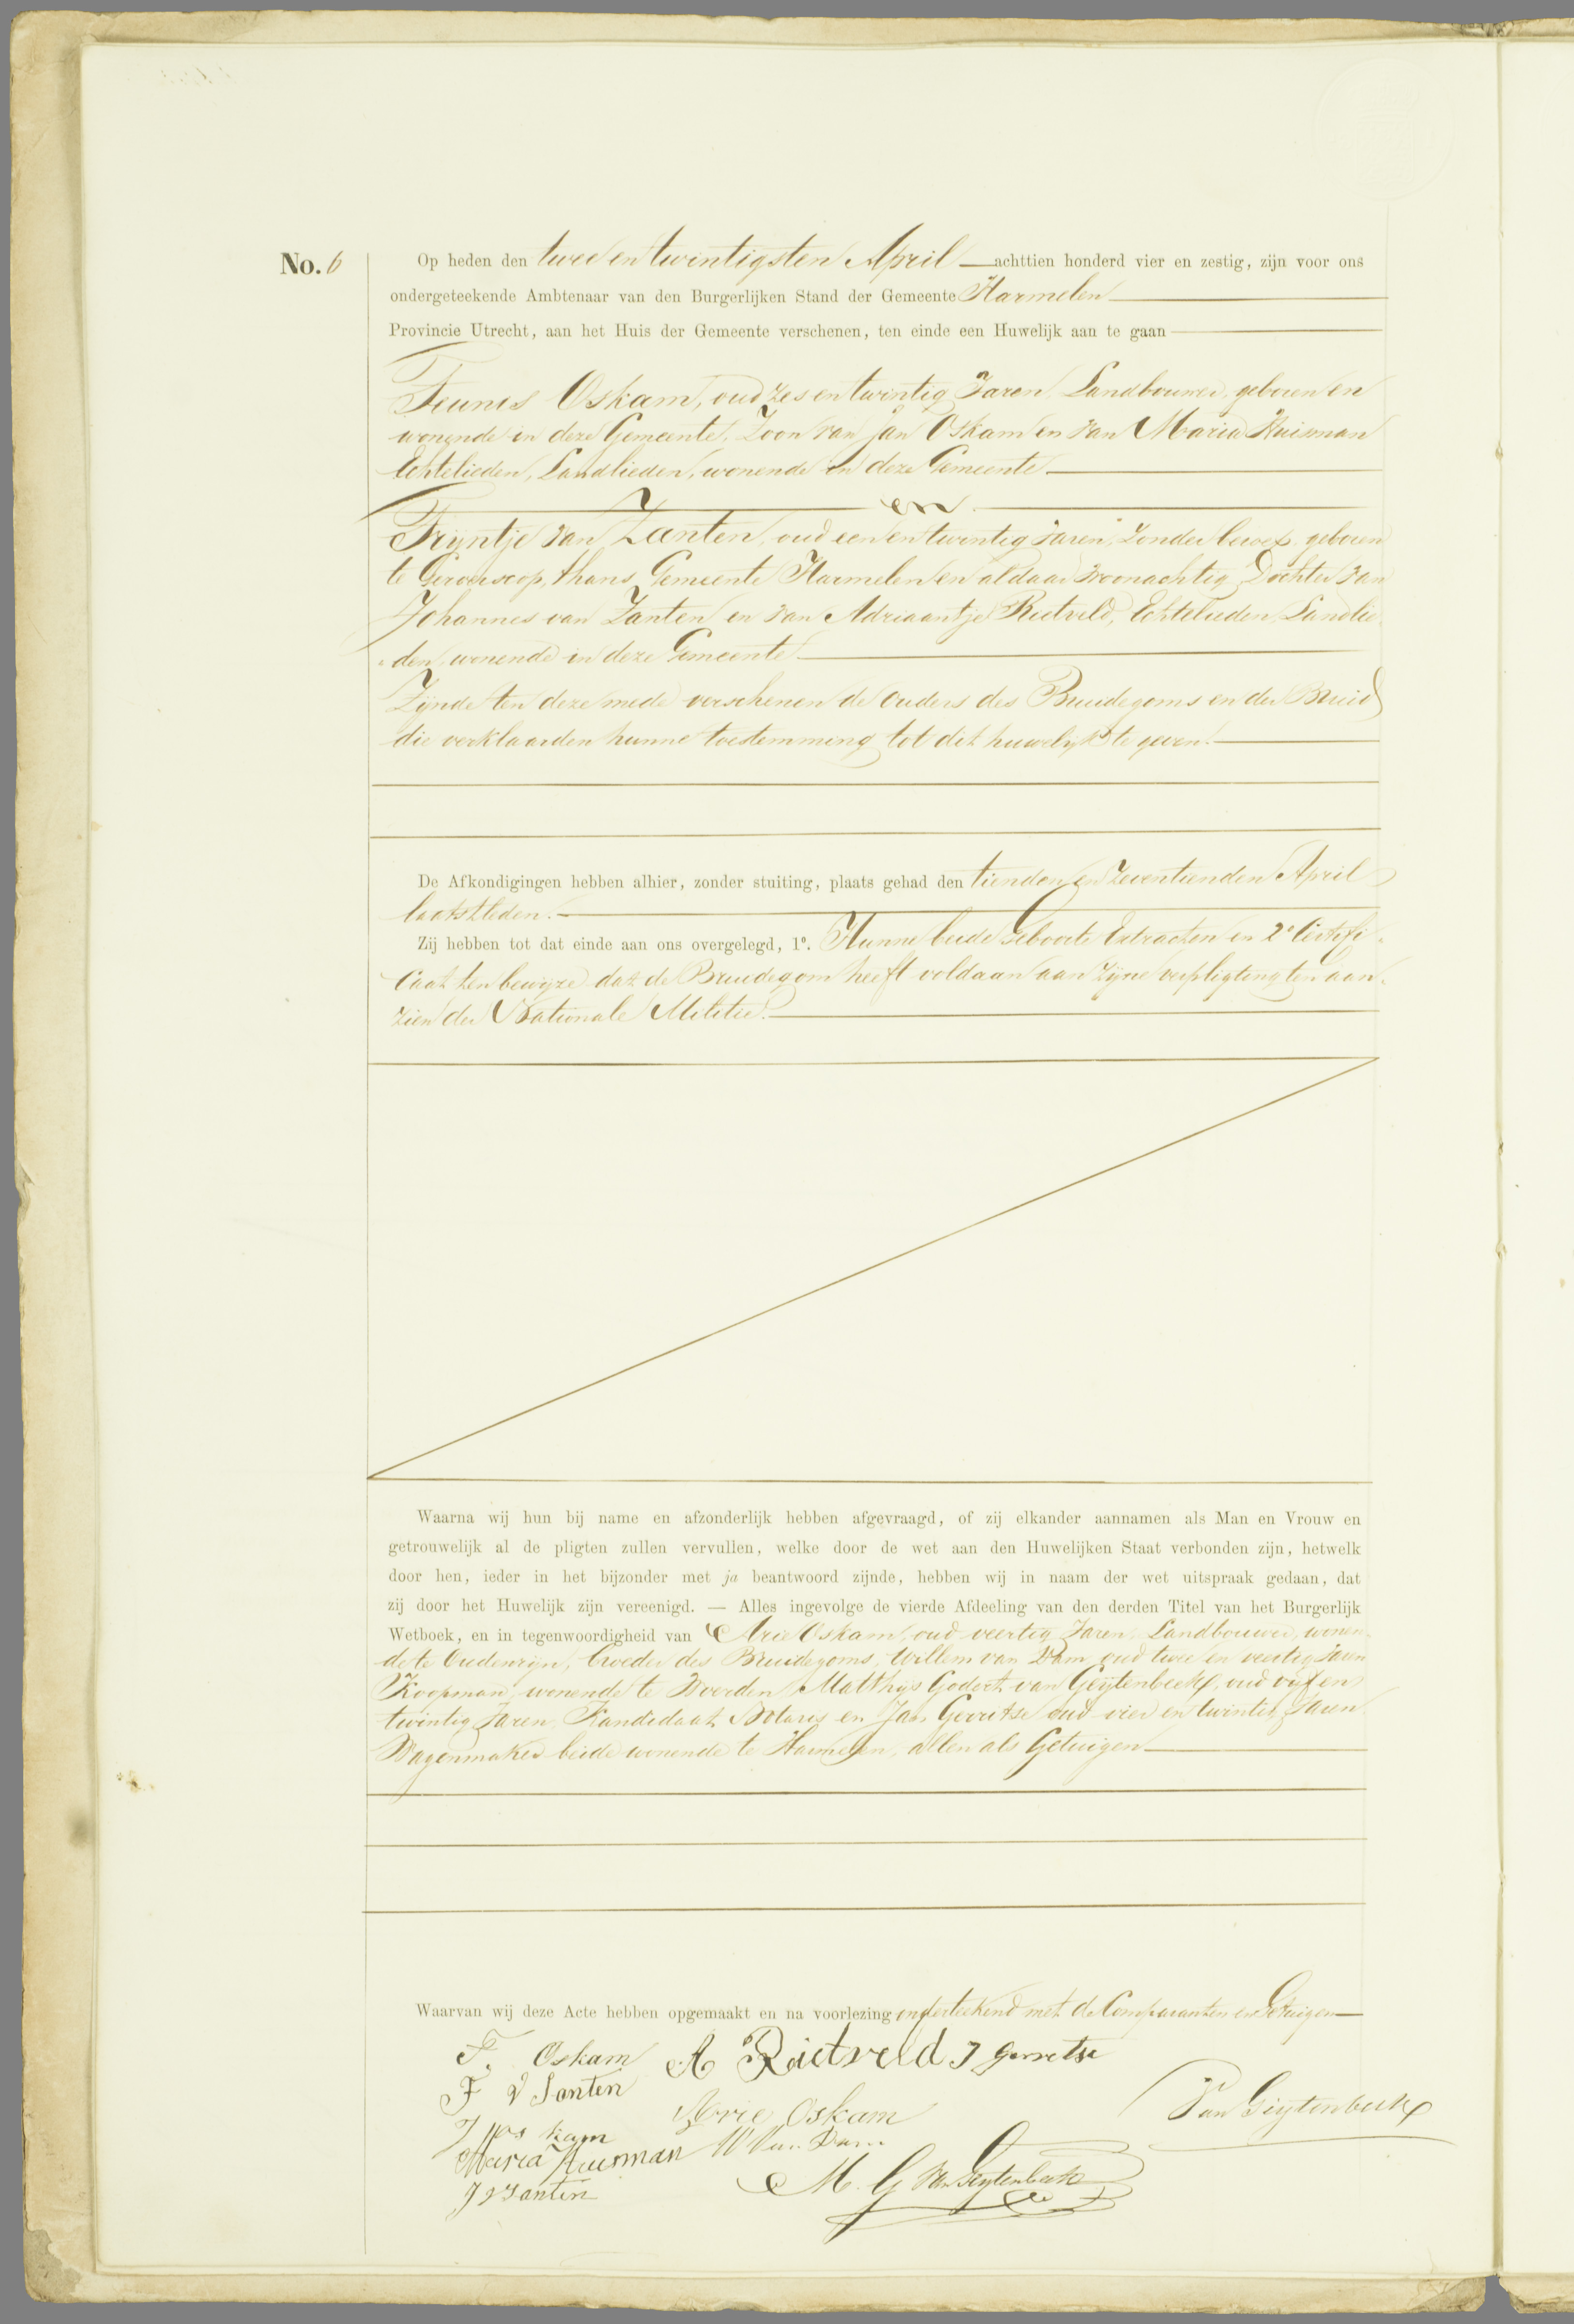 No. 6
Op heden den twee en twintigsten April achttien honderd vier en zestig, zijn voor ons
ondergeteekende Ambtenaar van den Burgerlijken Stand der Gemeente Harmelen
Provincie Utrecht, aan het Huis der Gemeente verschenen, ten einde een Huwelijk aan te gaan
Teunis Oskam, oud zes en twintig Jaren, Landbouwer, geboren en
wonende in deze Gemeente, Zoon van Jan Oskam en van Maria Huisman
Echtelieden, Landlieden, wonende in deze Gemeente
en
Trijntje van Zanten, oud een en twintig Jaren, zonder beroep, geboren
te Gerverscop, thans Gemeente Harmelen en aldaar woonachtig, Dochter van
Johannes van Zanten en van Adriaantje Rietveld, Echtelieden, Landlie
den, wonende in deze Gemeente
Zijnde ten deze mede verschenen de ouders des Bruidegoms en der Bruid
die verklaarden hunne toestemming tot dit huwelijk te geven.
De Afkondigingen hebben alhier, zonder stuiting, plaats gehad den tienden en zeventienden April
laatstleden.
Zij hebben tot dat einde aan ons overgelegd, 1°. Hunne beide Geboorte Extracten en 2° Certifi
caat ten bewijze dat de Bruidegom heeft voldaan aan zijne verpligting ten aan
zien der Nationale Militie.
Waarna wij hun bij name en afzonderlijk hebben afgevraagd, of zij elkander aannamen als Man en Vrouw en
getrouwelijk al de pligten zullen vervullen, welke door de wet aan den Huwelijken Staat verbonden zijn, hetwelk
door hen, ieder in het bijzonder met ja beantwoord zijnde, hebben wij in naam der wet uitspraak gedaan, dat
zij door het Huwelijk zijn vereenigd. — Alles ingevolge de vierde Afdeeling van den derden Titel van het Burgerlijk
Wetboek, en in tegenwoordigheid van Arie Oskam, oud veertig Jaren, Landbouwer, wonen
de te Oudenrijn, broeder des Bruidegoms, Willem van Dam, oud twee en veertig Jaren
Koopman, wonende te Woerden, Matthijs Godert van Geijtenbeek, oud vijf en
twintig Jaren, Kandidaat Notaris en Jan Gerritse oud vier en twintig Jaren
Wagenmaker beide wonende te Harmelen, allen als Getuigen
Waarvan wij deze Acte hebben opgemaakt en na voorlezing onderteekend met de Comparanten en Getuigen
T. Oskam A Rietveld J Gerretse
T v Santen
Arie Oskam Van Geijtenbeek
J Oskam
Maria Huisman W Van Dam
M. G Van Geytenbeek
J v Santen